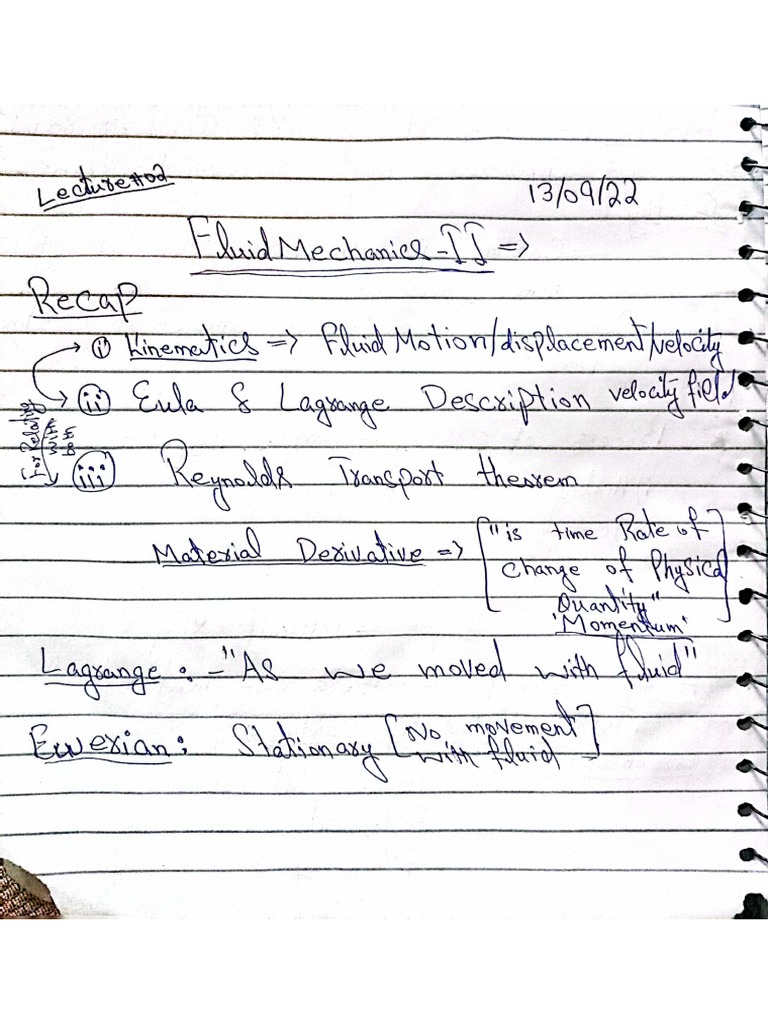 Lecture#02
13/09/22
Fluid Mechanics-II =>
Recap
(i) Kinematics => Fluid Motion/displacement/velocity
(ii) Eula & Lagrange Description velocity field
For Relating
with
both
(iii) Reynolds Transport theorem
Material Derivative => ["is time Rate of
change of Physical
Quantity"
'Momentum']
Lagrange : - "As we moved with fluid"
Ewerian : Stationary [No movement
with fluid]